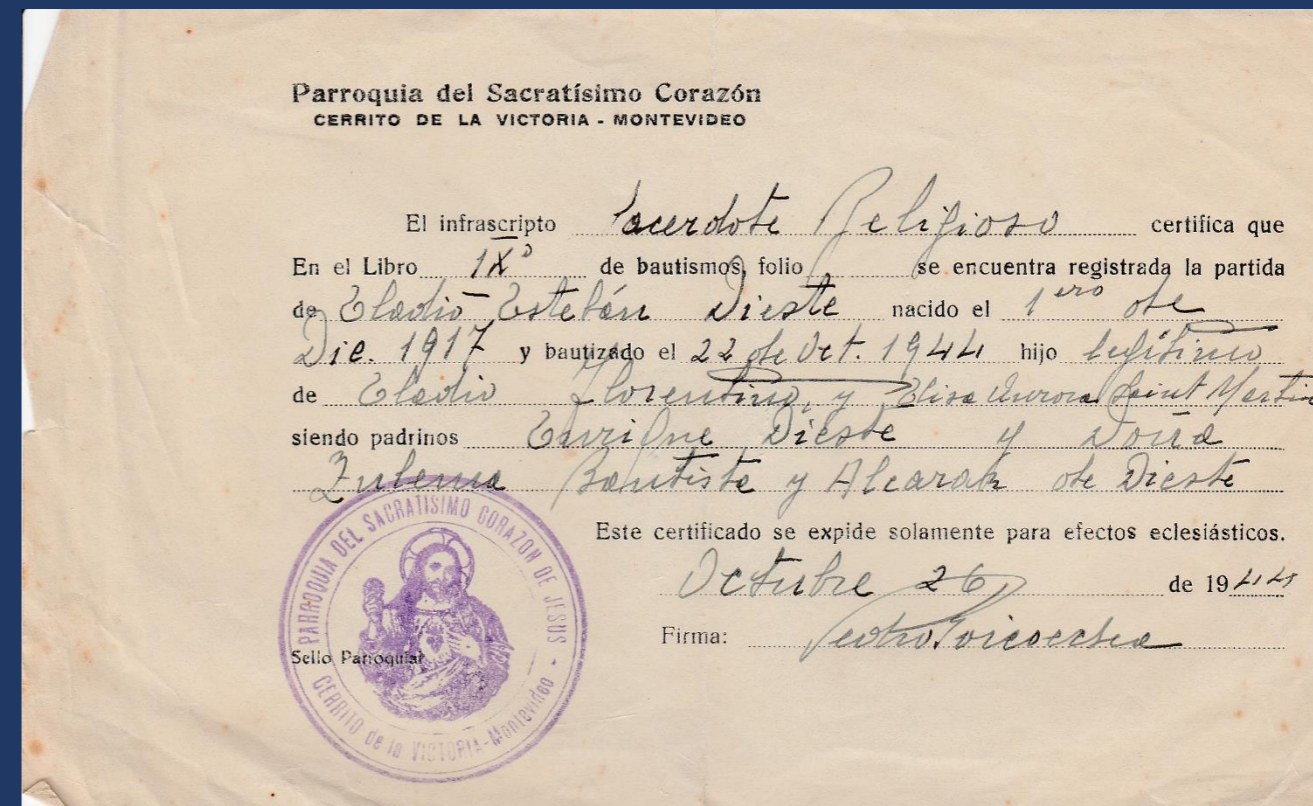 Parroquia del Sacratísimo Corazón
CERRITO DE LA VICTORIA - MONTEVIDEO
El infrascripto Sacerdote Religioso certifica que
En el Libro IXº de bautismos, folio se encuentra registrada la partida
de Eladio Esteban Dieste nacido el 1ero de
Dic. 1917 y bautizado el 22 de Oct. 1944 hijo legítimo
de Eladio Florentino, y Elisa Aurora Saint Martin
siendo padrinos Enrique Dieste y Doña
Zulema Bautista y Alcaraz de Dieste
Este certificado se expide solamente para efectos eclesiásticos.
Octubre 26 de 1944
Firma: Pedro Goicoechea
Sello Parroquial
PARROQUIA DEL SACRATISIMO CORAZON DE JESUS -
CERRITO de la VICTORIA-Montevideo